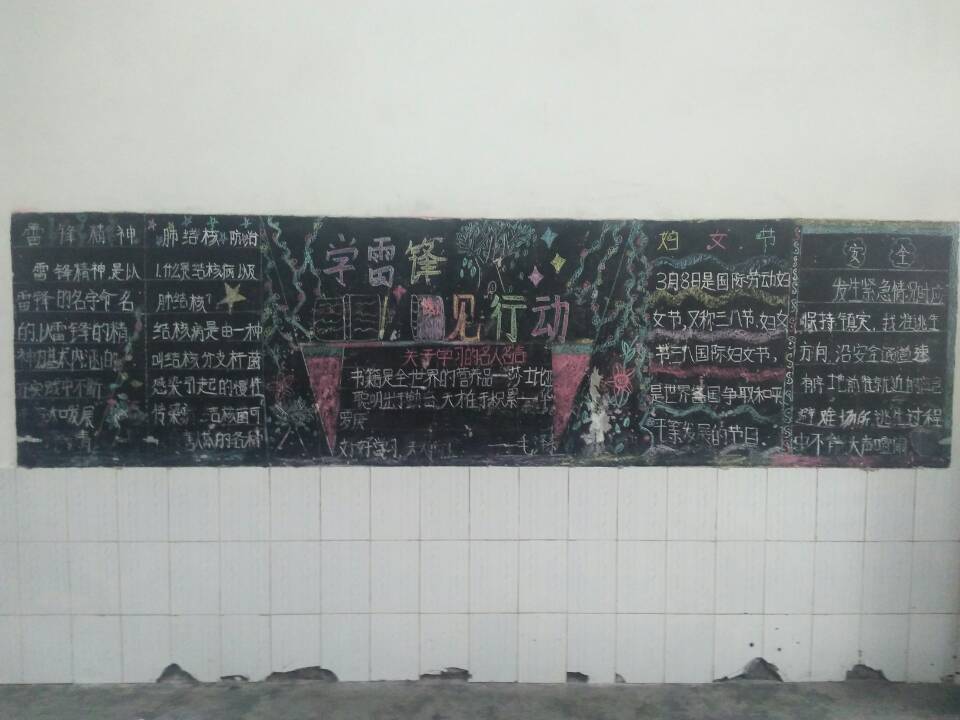 雷锋精神
雷锋精神是以
雷锋的名字命名
的,以雷锋的精
在实践中不断
肺结核防治
1.什么是结核病以及
肺结核?
结核病是由一种
叫结核分支杆菌
感染引起的慢性
传染 结核菌可
学雷锋
见行动
关于学习的名人名言
书籍是全世界的营养品—莎士比亚
聪明出于勤奋,天才在于积累—华
罗庚
好好学习,天天向上 —毛泽东
妇女节
3月8日是国际劳动妇
女节,又称三八节,妇女
节三八国际妇女节,
是世界各国争取和平
发展的节日.
安全
发生紧急情况时应
保持镇定,找准逃生
方向,沿安全通道
就近的应急
避难场所,逃生过程
中不 大声喧闹